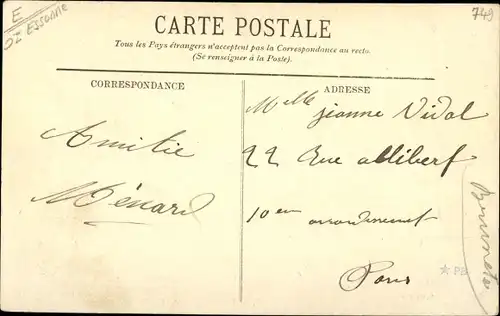 E
02 ESSONNE
749
CARTE POSTALE
Tous les Pays étrangers n'acceptent pas la Correspondance au recto.
(Se renseigner à la Poste).
CORRESPONDANCE
Amitie
Ménard
ADRESSE
Melle jeanne Vidal
22 Rue allibert
10em
arrondissement
Paris